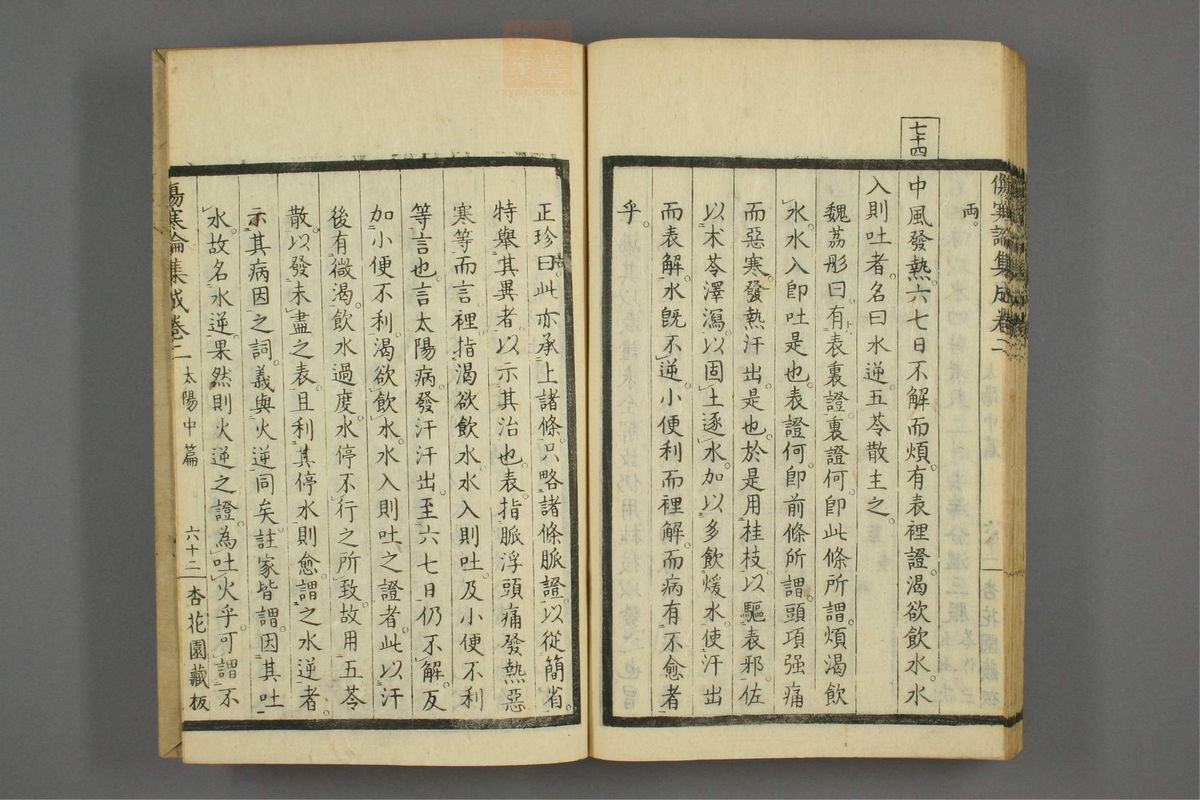 傷寒論集成卷二
兩
七十四
中風發熱六七日不解而煩有表裡證渴欲飲水水
入則吐者名曰水逆五苓散主之
魏荔彤曰有表裏證裏證何卽此條所謂煩渴飲
水水入卽吐是也表證何卽前條所謂頭項强痛
而惡寒發熱汗出是也於是用桂枝以驅表邪佐
以术苓澤瀉以固土逐水加以多飲煖水使汗出
而表解水旣不逆小便利而裡解而病有不愈者
乎
正珍曰此亦承上諸條只略諸條脈證以從簡省
特舉其異者以示其治也表指脈浮頭痛發熱惡
寒等而言裡指渴欲飲水水入則吐及小便不利
等言也言太陽病發汗汗出至六七日仍不解反
加小便不利渴欲飲水水入則吐之證者此以汗
後有微渴飲水過度水停不行之所致故用五苓
散以發未盡之表且利其停水則愈謂之水逆者
示其病因之詞義與火逆同矣註家皆謂因其吐
水故名水逆果然則火逆之證為吐火乎可謂不
傷寒論集成卷二 太陽中篇 六十二 杏花園藏板